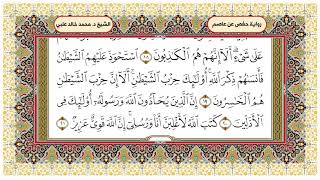 رواية حفص عن عاصم
الشيخ د. محمد خالد علبي
عَلَىٰ شَىْءٍ ۚ أَلَآ إِنَّهُمْ هُمُ ٱلْكَـٰذِبُونَ ١٨ ٱسْتَحْوَذَ عَلَيْهِمُ ٱلشَّيْطَـٰنُ
فَأَنسَىٰهُمْ ذِكْرَ ٱللَّهِ ۚ أُو۟لَـٰٓئِكَ حِزْبُ ٱلشَّيْطَـٰنِ ۚ أَلَآ إِنَّ حِزْبَ ٱلشَّيْطَـٰنِ
هُمُ ٱلْخَـٰسِرُونَ ١٩ إِنَّ ٱلَّذِينَ يُحَآدُّونَ ٱللَّهَ وَرَسُولَهُۥٓ أُو۟لَـٰٓئِكَ فِى
ٱلْأَذَلِّينَ ٢٠ كَتَبَ ٱللَّهُ لَأَغْلِبَنَّ أَنَا۠ وَرُسُلِىٓ ۚ إِنَّ ٱللَّهَ قَوِىٌّ عَزِيزٌ ٢١